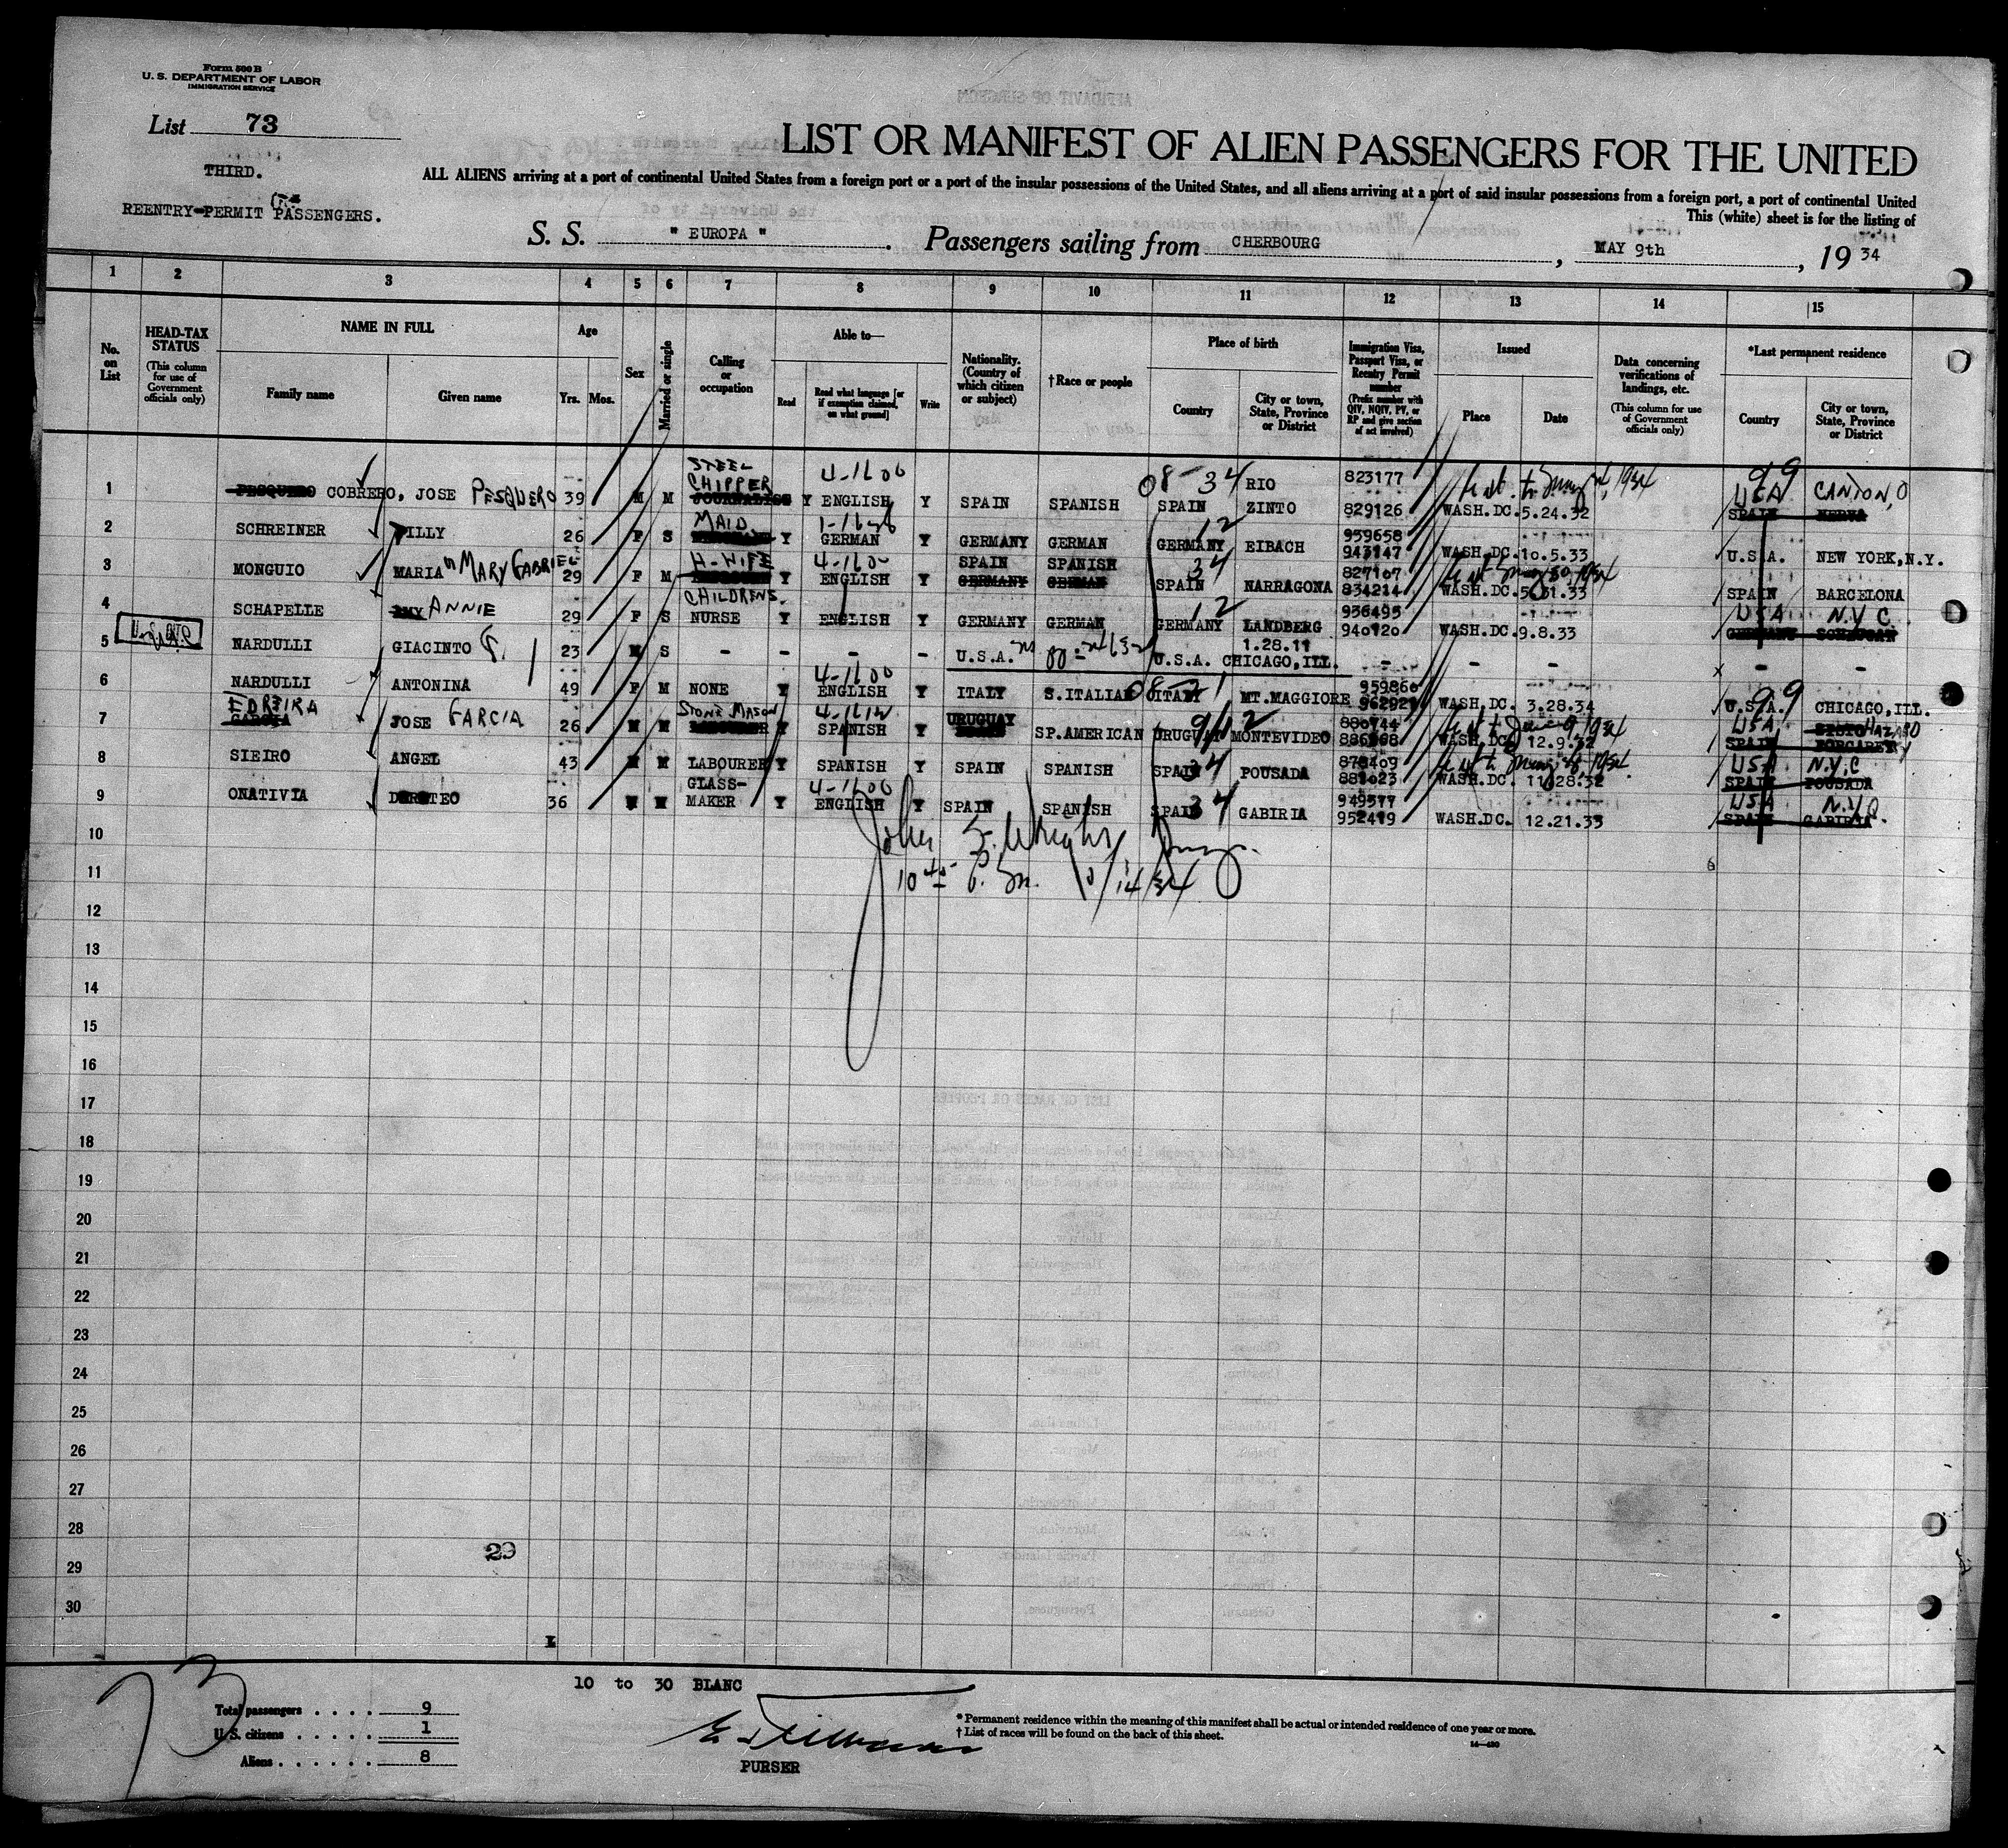 Form 500 B
U. S. DEPARTMENT OF LABOR
IMMIGRATION SERVICE
List 73
THIRD.
REENTRY-PERMIT PASSENGERS.
LIST OR MANIFEST OF ALIEN PASSENGERS FOR THE UNITED
ALL ALIENS arriving at a port of continental United States from a foreign port or a port of the insular possessions of the United States, and all aliens arriving at a port of said insular possessions from a foreign port, a port of continental United
This (white) sheet is for the listing of
S. S. " EUROPA ". Passengers sailing from CHERBOURG, MAY 9th, 19 34
1 2 3 4 5 6 7 8 9 10 11 12 13 14 15
No. on List
HEAD-TAX STATUS
(This column for use of Government officials only)
NAME IN FULL
Family name
Given name
Age
Yrs. Mos.
Sex
Married or single
Calling or occupation
Able to—
Read
Read what language [or if exemption claimed, on what ground]
Write
Nationality. (Country of which citizen or subject)
† Race or people
Place of birth
Country
City or town, State, Province or District
Immigration Visa, Passport Visa, or Reentry Permit number
(Prefix number with QIV, NQIV, PV, or RP and give section of act involved)
Issued
Place
Date
Data concerning verifications of landings, etc.
(This column for use of Government officials only)
*Last permanent residence
Country
City or town, State, Province or District
STEEL CHIPPER 4-1600 08-34 823177 99
1 PESQUERO COBRERO, JOSE PESQUERO 39 M M JOURNALIST Y ENGLISH Y SPAIN SPANISH SPAIN RIO ZINTO 829126 WASH.DC. 5.24.32 USA CANTON, O
SPAIN NERVA
MAID 12 959658
2 SCHREINER TILLY 26 F S Y GERMAN Y GERMANY GERMAN GERMANY EIBACH 943147 WASH.DC. 10.5.33 U.S.A. NEW YORK, N.Y.
H-WIFE 4-1600 SPAIN SPANISH 34 827107
3 MONGUIO MARIA MARY GABRIEL 29 F M Y ENGLISH Y GERMANY GERMAN SPAIN NARRAGONA 834214 WASH.DC. SPAIN BARCELONA
CHILDRENS 12 936495 USA N.Y.C.
4 SCHAPELLE AMY ANNIE 29 F S NURSE Y ENGLISH Y GERMANY GERMAN GERMANY LANDBERG 940120 WASH.DC. 9.8.33
1.28.11
5 NARDULLI GIACINTO G. 23 M S - - - U.S.A. U.S.A. CHICAGO, ILL. - - - x - -
4-1600 959860 99
6 NARDULLI ANTONINA 49 F M NONE Y ENGLISH Y ITALY S.ITALIAN ITALY MT.MAGGIORE WASH.DC. 3.28.34 U.S.A. CHICAGO, ILL.
EDREIRA STONE MASON URUGUAY 880744 USA
7 GARCIA JOSE GARCIA 26 M M Y SPANISH Y SP.AMERICAN URUGUAY MONTEVIDEO WASH.DC. 12.9.32 SPAIN
34 878409 USA N.Y.C
8 SIEIRO ANGEL 43 M M LABOURER Y SPANISH Y SPAIN SPANISH SPAIN POUSADA 881023 WASH.DC. 11.28.32 SPAIN POUSADA
GLASS- 4-1600 34 949577 USA N.Y.C.
9 ONATIVIA DOROTEO 36 M M MAKER Y ENGLISH Y SPAIN SPANISH SPAIN GABIRIA 952419 WASH.DC. 12.21.33 SPAIN GABIRIA
10
John S. Wright
11
10 45 P.M. 5/14/34
12
13
14
15
16
17
18
19
20
21
22
23
24
25
26
27
28
29
29
30
10 to 30 BLANC
73
Total passengers . . . . 9
U. S. citizens . . . . . 1
Aliens . . . . . . 8
PURSER
* Permanent residence within the meaning of this manifest shall be actual or intended residence of one year or more.
† List of races will be found on the back of this sheet.
14—430